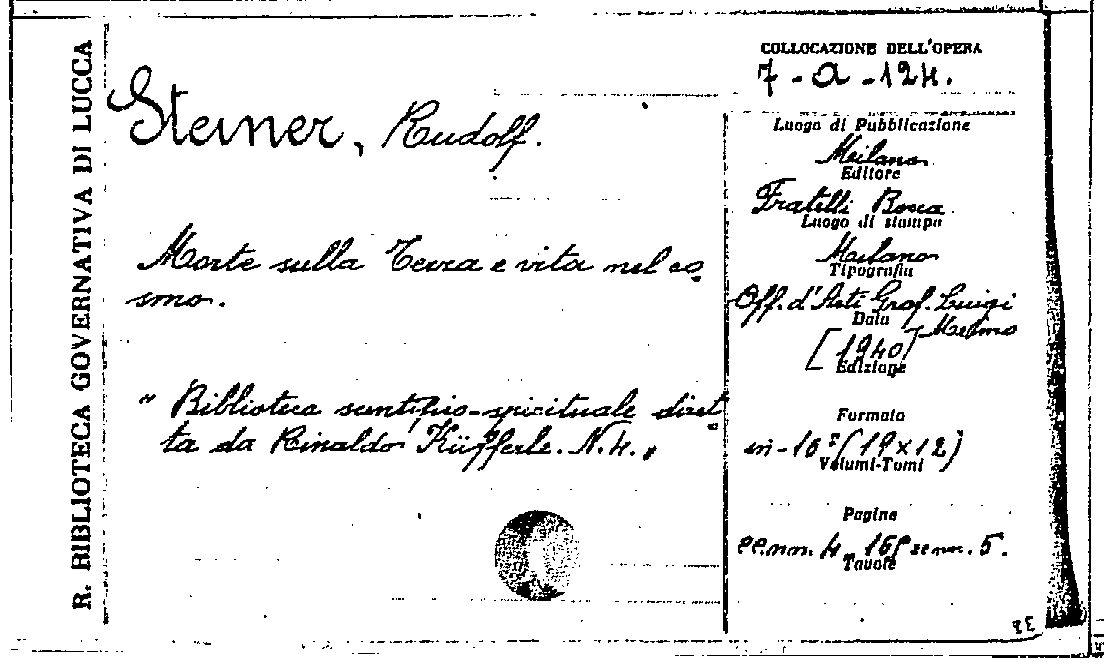 R. BIBLIOTECA GOVERNATIVA DI LUCCA
COLLOCAZIONE DELL'OPERA
7 - a - 124.
Steiner, Rudolf.
Morte sulla Terra e vita nel co-
smo.
" Biblioteca scientifico-spirituale diret-
ta da Rinaldo Küfferle. N. 4. "
Luogo di Pubblicazione
Milano
Editore
Fratelli Bocca
Luogo di stampa
Milano
Tipografia
Off. d'Arti Graf. Luigi
Data
[1940]
Edizione
Formato
in-16° (19x12)
Volumi-Tomi
Pagine
cc.nn. 4, cc.nn. 5.
Tavole